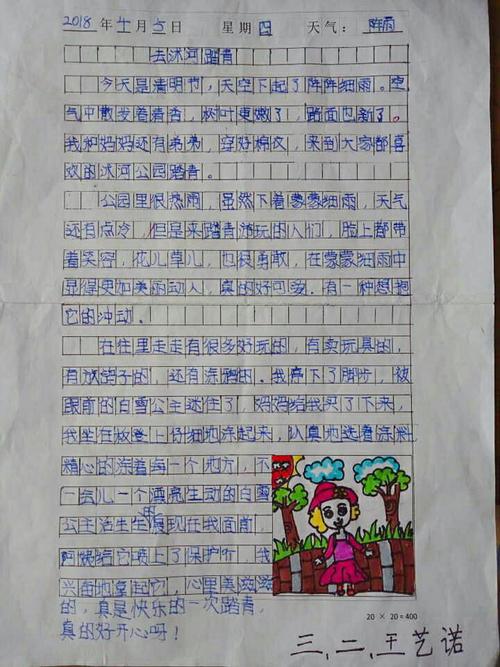 2018 年 4 月 5 日 星期 四 天气: 阵雨
去沭河踏青
今天是清明节，天空下起了阵阵细雨。空
气中散发着着香，树叶更嫩了，路面也新了。
我和妈妈还有弟弟，穿好棉衣，来到大家都喜
欢的沭河公园踏青。
公园里很热雨，虽然下着蒙蒙细雨，天气
还有点冷，但是来踏青游玩的人们，脸上都带
着笑容，花儿草儿，也很勇敢，在蒙蒙细雨中
显得更加美丽动人，真的好可爱。有一种想抱
它的冲动。
在往里走走有很多好玩的，有卖玩具的，
有放鸽子的，还有涂鸦的。我停下了脚步，被
眼前的白雪公主迷住了，妈妈给我买了下来，
我坐在板登上仔细地涂起来，认真地选着涂料，
精心的涂着每一个地方，不
一会儿一个漂亮生动的白雪
公主活生生展现在我面前，
阿姨给它喷上了保护 我
兴 地拿起它，心里美滋滋
的，真是快乐的一次踏青，
真的好开心呀！
20 × 20 = 400
三、二、王艺诺